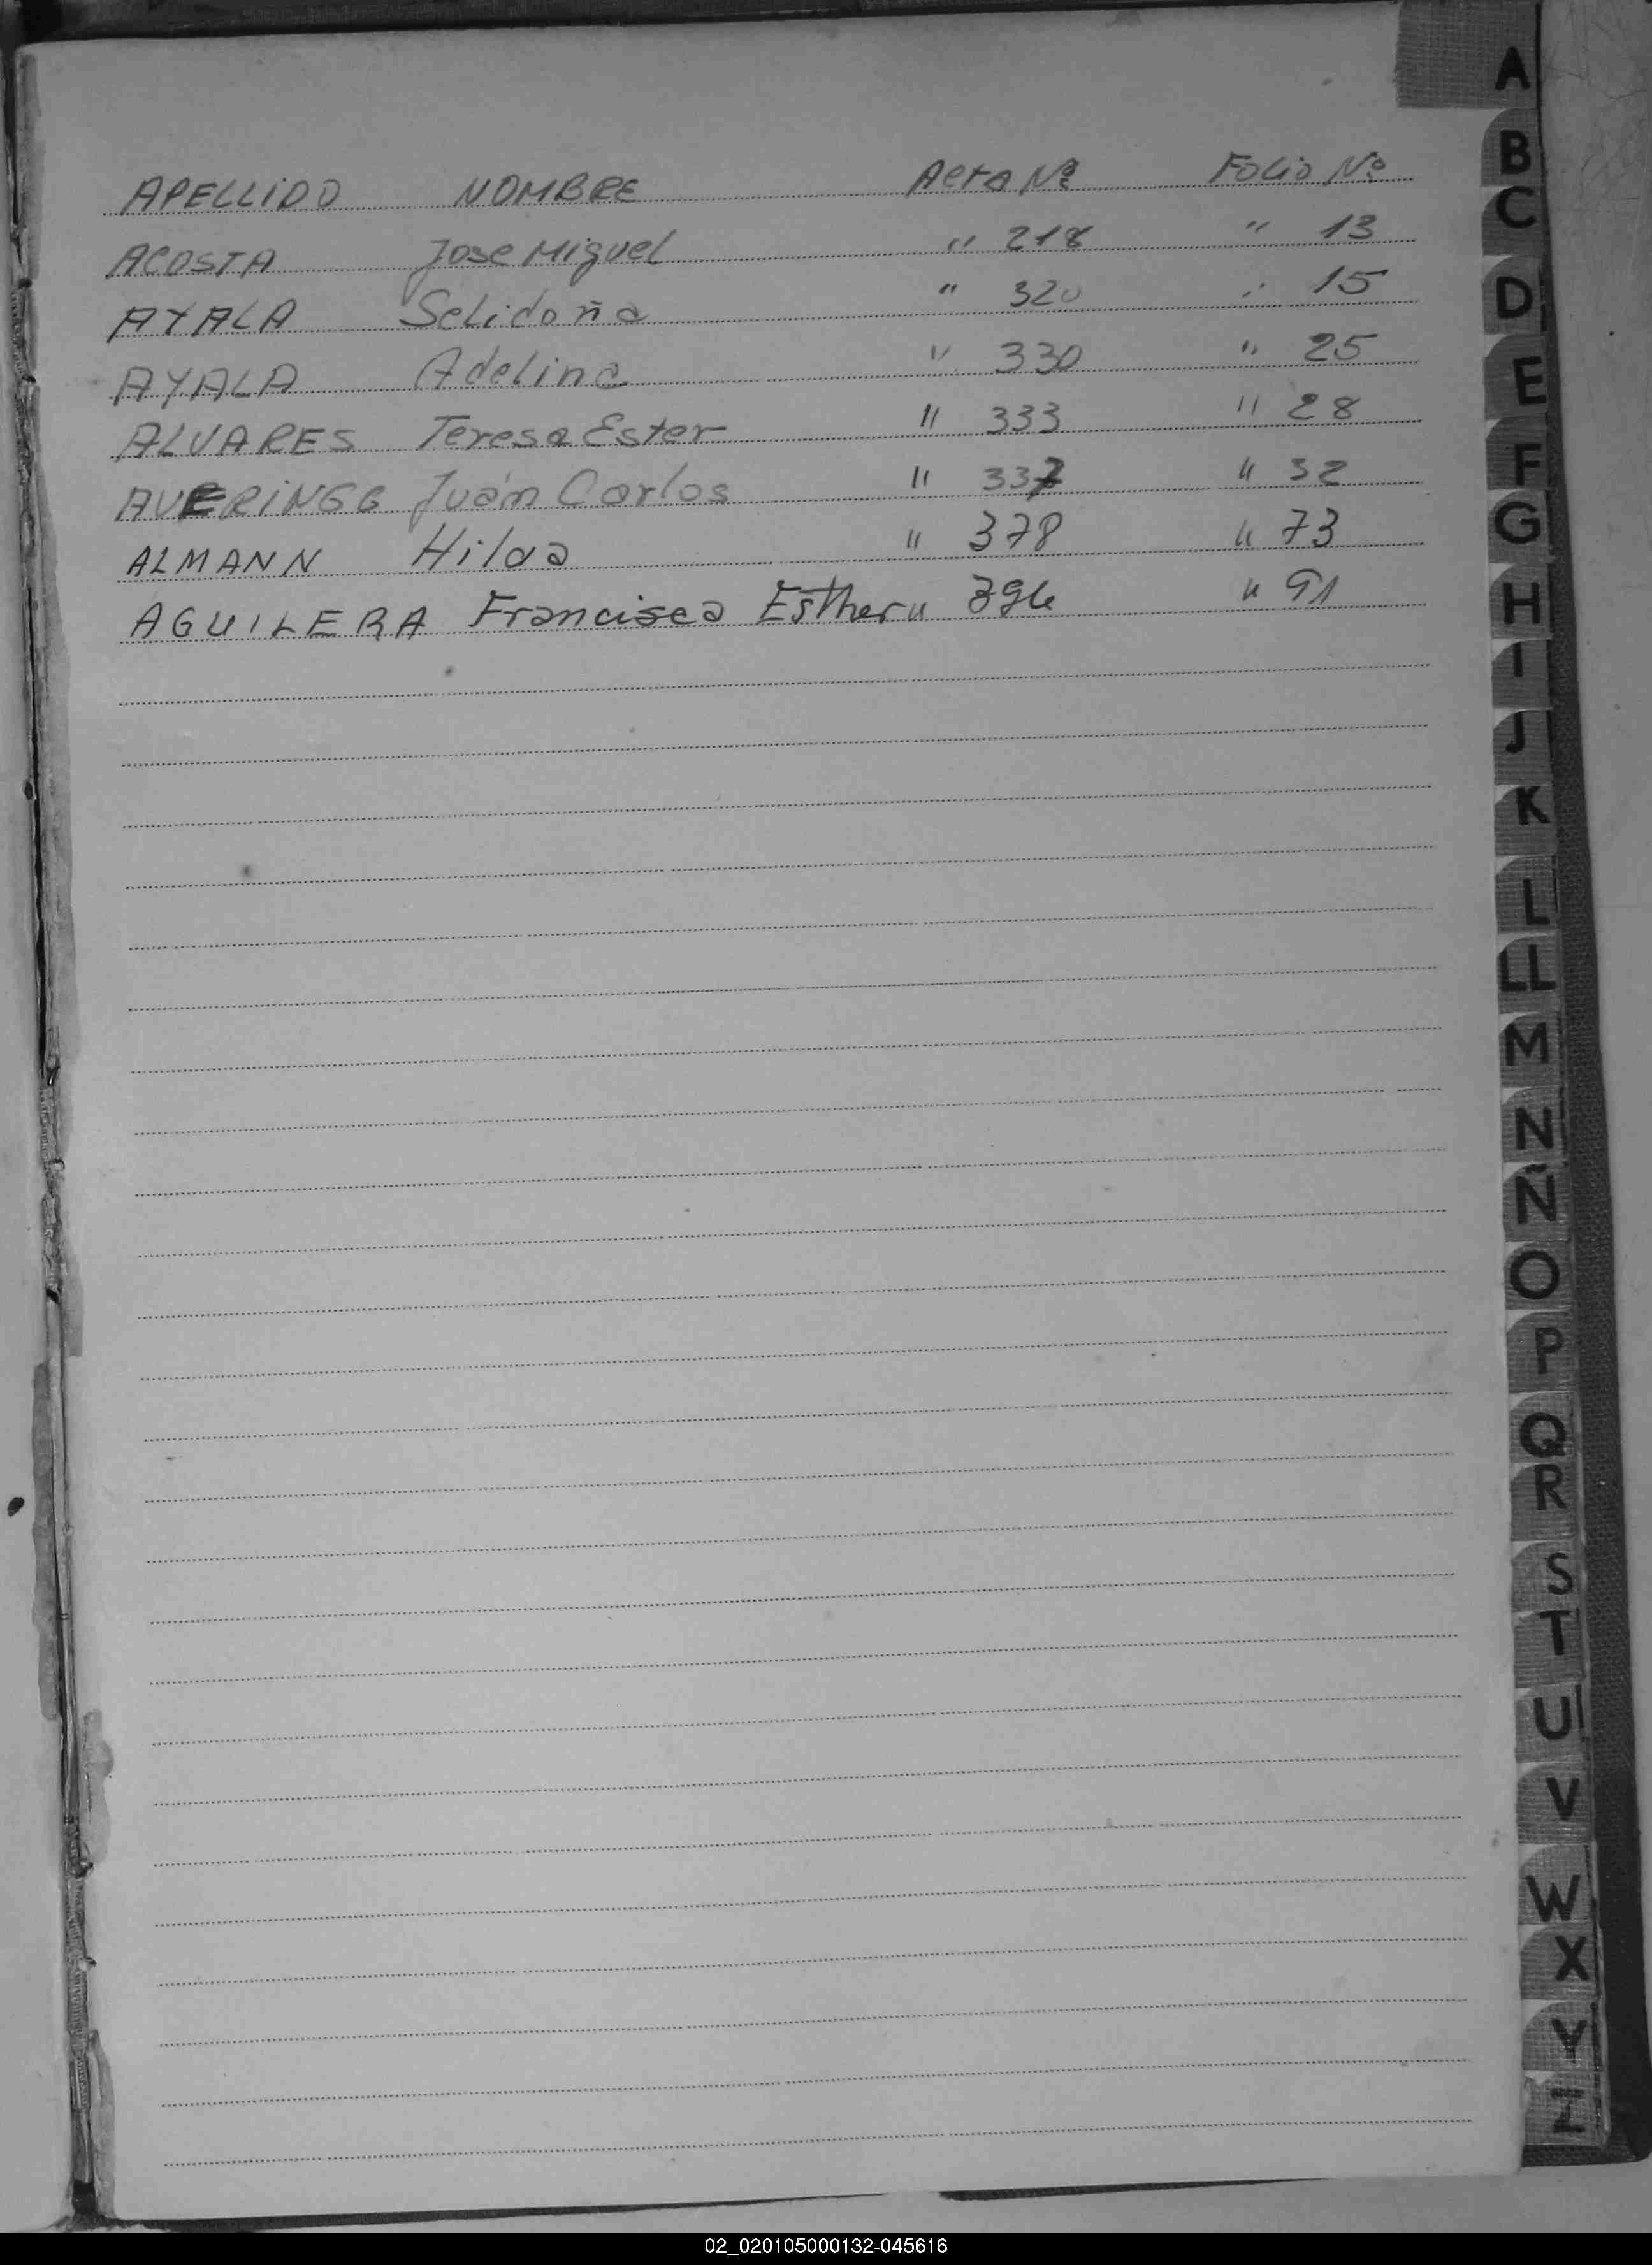 APELLIDO NOMBRE Acta Nº Folio Nº
ACOSTA Jose Miguel " 218 " 13
AYALA Selidoña " 320 " 15
AYALA Adelina " 330 " 25
ALVARES Teresa Ester " 333 " 28
AVERINGG Juan Carlos " 337 " 32
ALMANN Hilda " 378 " 73
AGUILERA Francisca Esther " 396 " 91
A
B
C
D
E
F
G
H
I
J
K
L
LL
M
N
Ñ
O
P
Q
R
S
T
U
V
W
X
Y
Z
02_020105000132-045616